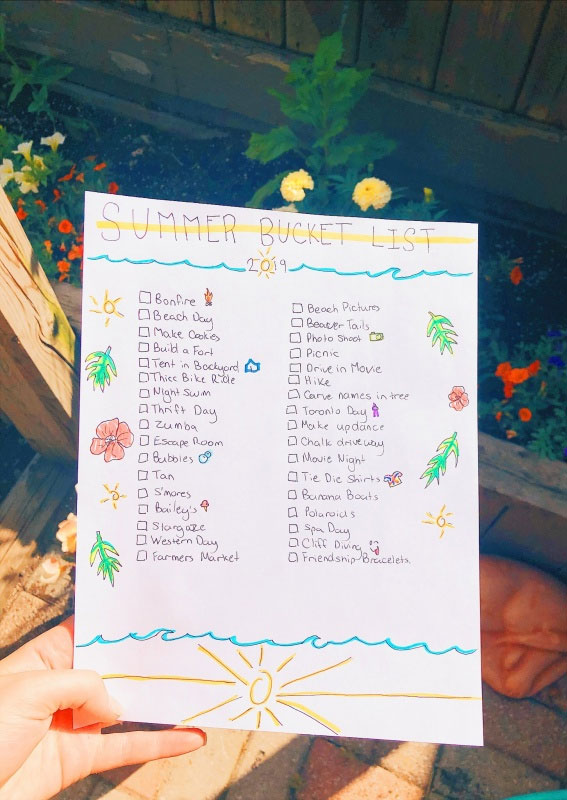 SUMMER BUCKET LIST
2019
Bonfire
Beach Day
Make Cookies
Build a Fort
Tent in Backyard
Thicc Bike Ride
Night Swim
Thrift Day
Zumba
Escape Room
Bubbles
Tan
S'mores
Bailey's
Stargaze
Western Day
Farmers Market
Beach Pictures
Beaver Tails
Photo Shoot
Picnic
Drive in Movie
Hike
Carve names in tree
Toronto Day
Make up dance
Chalk driveway
Movie Night
Tie Die Shirts
Banana Boats
Polaroids
Spa Day
Cliff Diving
Friendship Bracelets